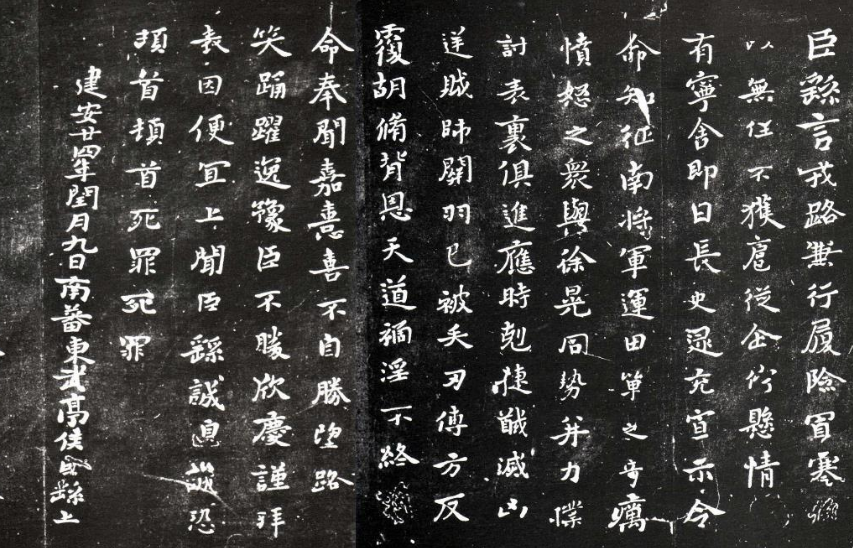 臣繇言戎路兼行履險冒寒
以無任不獲扈從企佇懸情
有寧舍即日長史逯充宣示令
命知征南將軍運田單之奇厲
憤怒之眾與徐晃同勢并力撲
討表裏俱進應時剋捷馘滅凶
逆賊帥關羽已被矢刃傅方反
覆胡脩背恩天道禍淫不終
命奉聞嘉憙喜不自勝望路
笑踊躍逸豫臣不勝欣慶謹拜
表因便宜上聞臣繇誠惶誠恐
頓首頓首死罪死罪
建安廿四年閏月九日南蕃東武亭侯臣繇上